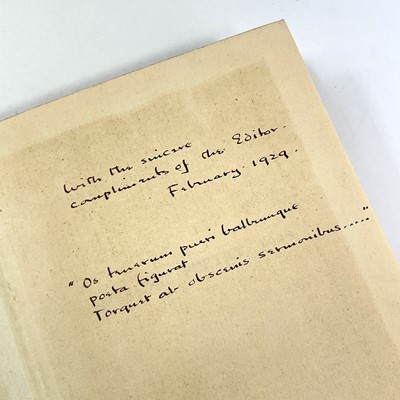 With the sincere
compliments of the Editor.
February. 1929.
" Os tenerum pueri balbumque
poeta figurat
Torquet ab obscenis sermonibus....."